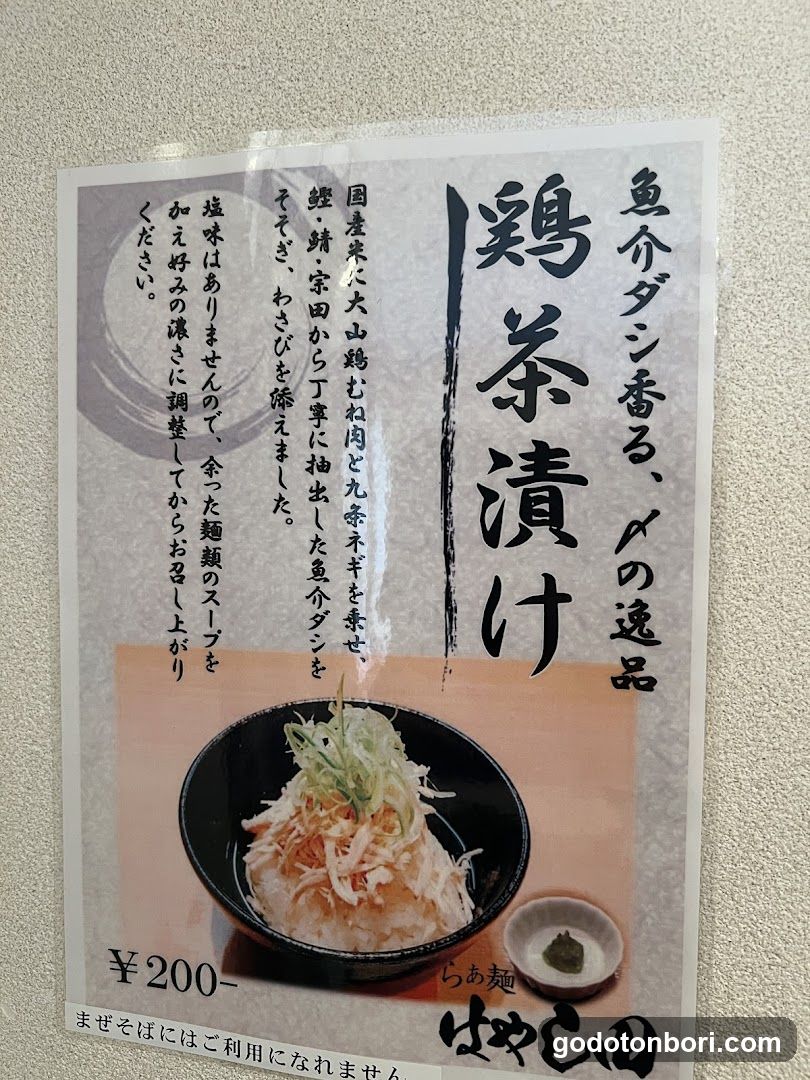 魚介ダシ香る、〆の逸品
鶏茶漬け
国産米に大山鶏むね肉と九条ネギを乗せ、
鰹・鯖・宗田から丁寧に抽出した魚介ダシを
そそぎ、わさびを添えました。
塩味はありませんので、余った麺類のスープを
加え好みの濃さに調整してからお召し上がり
ください。
¥200-
らぁ麺
はやし田
まぜそばにはご利用になれません。
godotonbori.com